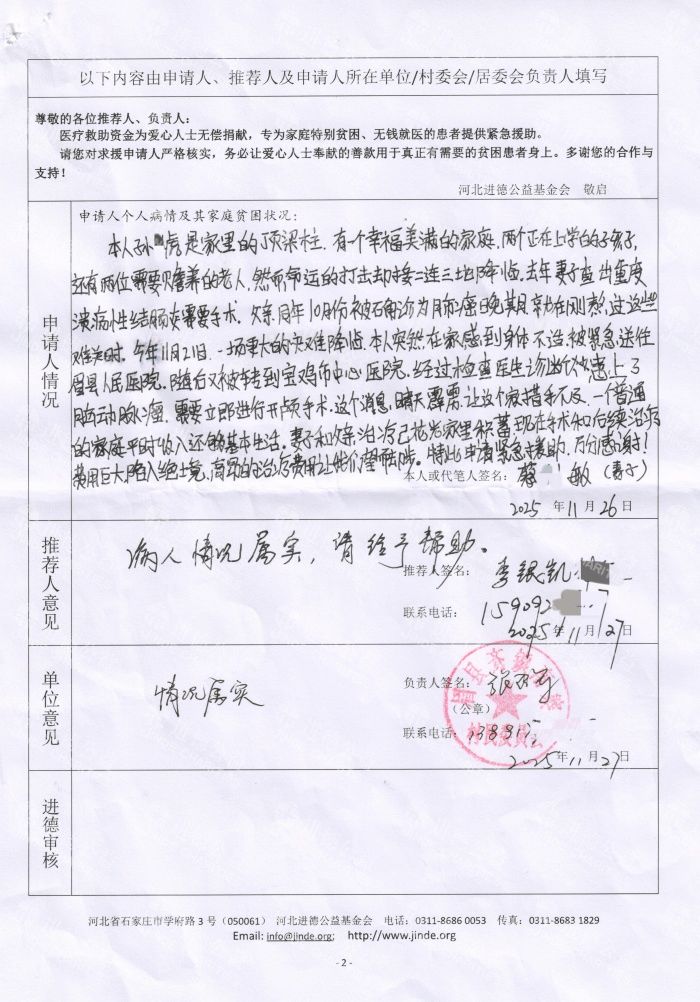 以下内容由申请人、推荐人及申请人所在单位/村委会/居委会负责人填写
尊敬的各位推荐人、负责人：
医疗救助资金为爱心人士无偿捐献，专为家庭特别贫困、无钱就医的患者提供紧急援助。
请您对求援申请人严格核实，务必让爱心人士奉献的善款用于真正有需要的贫困患者身上。多谢您的合作与
支持！
河北进德公益基金会 敬启
申请人情况
申请人个人病情及其家庭贫困状况：
本人孙 虎是家里的顶梁柱，有一个幸福美满的家庭，两个正在上学的孩子，
还有两位需要赡养的老人，然而命运的打击却接二连三地降临。去年妻子查出重度
溃疡性结肠炎需要手术。父亲同年10月份被确诊为肺癌晚期，就在刚熬过这些
难关时，今年11月21日，一场更大的灾难降临，本人突然在家感到身体不适，被紧急送往
眉县人民医院，随后又被转到宝鸡市中心医院，经过检查医生诊断患上了
脑动脉瘤，需要立即进行开颅手术。这个消息，晴天霹雳，让这个家措手不及，一个普通
的家庭平时收入还够基本生活。妻子和父亲治疗已花光家里积蓄，现在手术和后续治疗
费用巨大，陷入绝境，高昂的治疗费用让我们望而却步。特此申请紧急援助，万分感谢！
本人或代笔人签名： 敏（妻子）
2025 年 11 月 26 日
推荐人意见
病人情况属实，请给予帮助。
推荐人签名：李银凯
联系电话：159092
2025年 11 月 27 日
单位意见
情况属实
负责人签名：张
（公章）
村民委员会
联系电话：13891
2025年 11 月 27 日
进德审核
河北省石家庄市学府路 3 号（050061） 河北进德公益基金会 电话：0311-8686 0053 传真：0311-8683 1829
Email: info@jinde.org; http://www.jinde.org
- 2 -